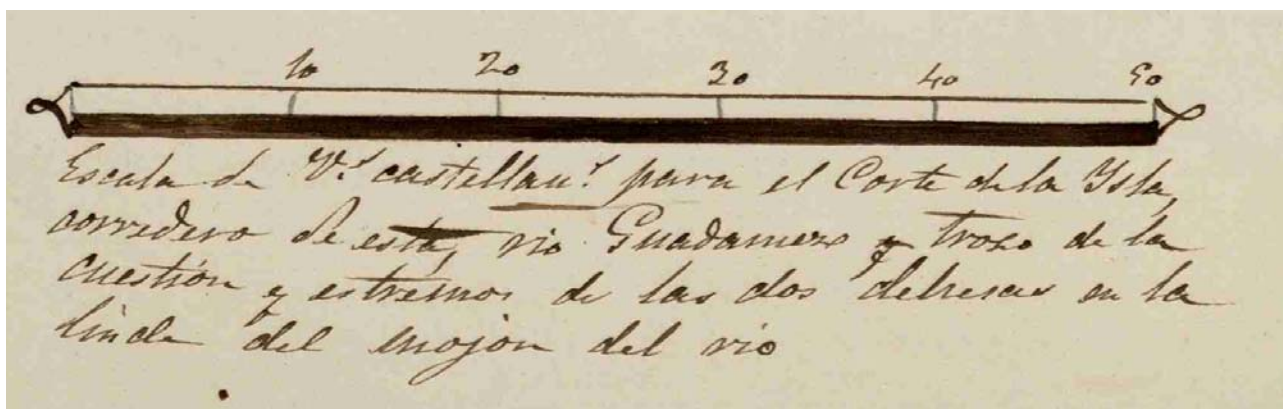 10 20 30 40 50
Escala de V.s castellan.s para el Corte de la Ysla,
corredero de esta, rio Guadamez y trozo de la
cuestión y estremos de las dos dehesas en la
linde del mojón del rio